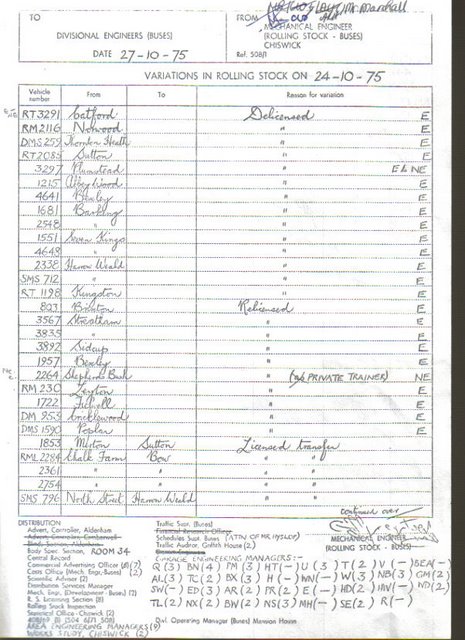 TO
DIVISIONAL ENGINEERS (BUSES)
DATE 27-10-75
FROM
Marshall
MECHANICAL ENGINEER
(ROLLING STOCK - BUSES)
CHISWICK
Ref. 508/1
VARIATIONS IN ROLLING STOCK ON 24-10-75
Vehicle number From To Reason for variation
RT3291 Catford Delicensed E
RM2116 Norwood " E
DMS 259 Thornton Heath " E
RT2085 Sutton " E
3297 Plumstead " E & NE
1215 Abbey Wood " E
4641 Bexley " E
1681 Barking " E
2548 " " E
1551 Seven Kings " E
4648 " " E
2338 Harrow Weald " E
SMS 712 " " E
RT 1198 Kingston " E
803 Brixton Relicensed E
3567 Streatham " E
3835 " " E
3892 Sidcup " E
1957 Bexley " E
2264 Shepherds Bush " (as PRIVATE TRAINER) NE
RM 230 Leyton " E
1722 Fulwell " E
DM 953 Cricklewood " E
DMS 1590 Poplar " E
1853 Merton Sutton Licensed transfer
RML 2284 Chalk Farm Bow "
2361 " " "
2754 " " "
SMS 796 North Street Harrow Weald "
continued over
MECHANICAL ENGINEER
(ROLLING STOCK - BUSES)
DISTRIBUTION
Advert. Controller, Aldenham
Advert. Controller, Camberwell
Body Spec. Section, ROOM 34
Central Record
Commercial Advertising Officer (7)
Costs Office (Mech. Engr. Buses) (2)
Scientific Adviser (2)
Distribution Services Manager
Mech. Engr. (Development - Buses) (2)
R. S. Licensing Section (8)
Rolling Stock Inspection
Statistical Officer (2)
AREA ENGINEERING MANAGERS (9)
WORKS STUDY, CHISWICK (2)
Traffic Supt. (Buses)
Financial Research Officer
Schedules Supt. Buses (ATTN OF MR HYSLOP)
Traffic Auditor, Griffith House (2)
GARAGE ENGINEERING MANAGERS:-
Q (3) BN (4) PM (3) HT (-) U (3) T (2) V (-) BEA (-)
AL (3) TC (2) BX (3) H (-) WN (-) W (3) NB (3) GM (2)
SW (-) ED (3) AR (2) PR (2) E (-) HD (2) MV (-) WD (2)
TL (2) NX (2) BW (2) NS (3) MH (-) SE (2) R (-)
Divl. Operating Manager (Buses) Manson House